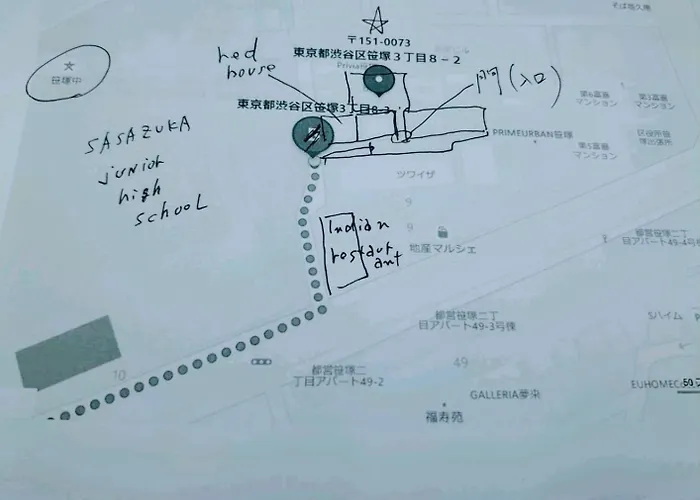 そば格久庵
〒151-0073
東京都渋谷区笹塚3丁目8-2
hed
house
笹塚中
門(入口)
第6富慕
マンション
第3富慕
マンション
東京都渋谷区笹塚3丁目8-3
SASAZUKA
junior
high
SCHOOL
PRIMEURBAN笹塚
第5富慕
マンション
区役所笹
塚出張所
ツワイザ
9
9
Indian
restaurant
ant
地産マルシェ
都営笹塚二丁
目アパート49-4号
都営笹塚二丁
目アパート49-3号棟
Sハイム
10
都営笹塚二
丁目アパート49-2
49
GALLERIA夢来
EUHOMEC
59
福寿苑